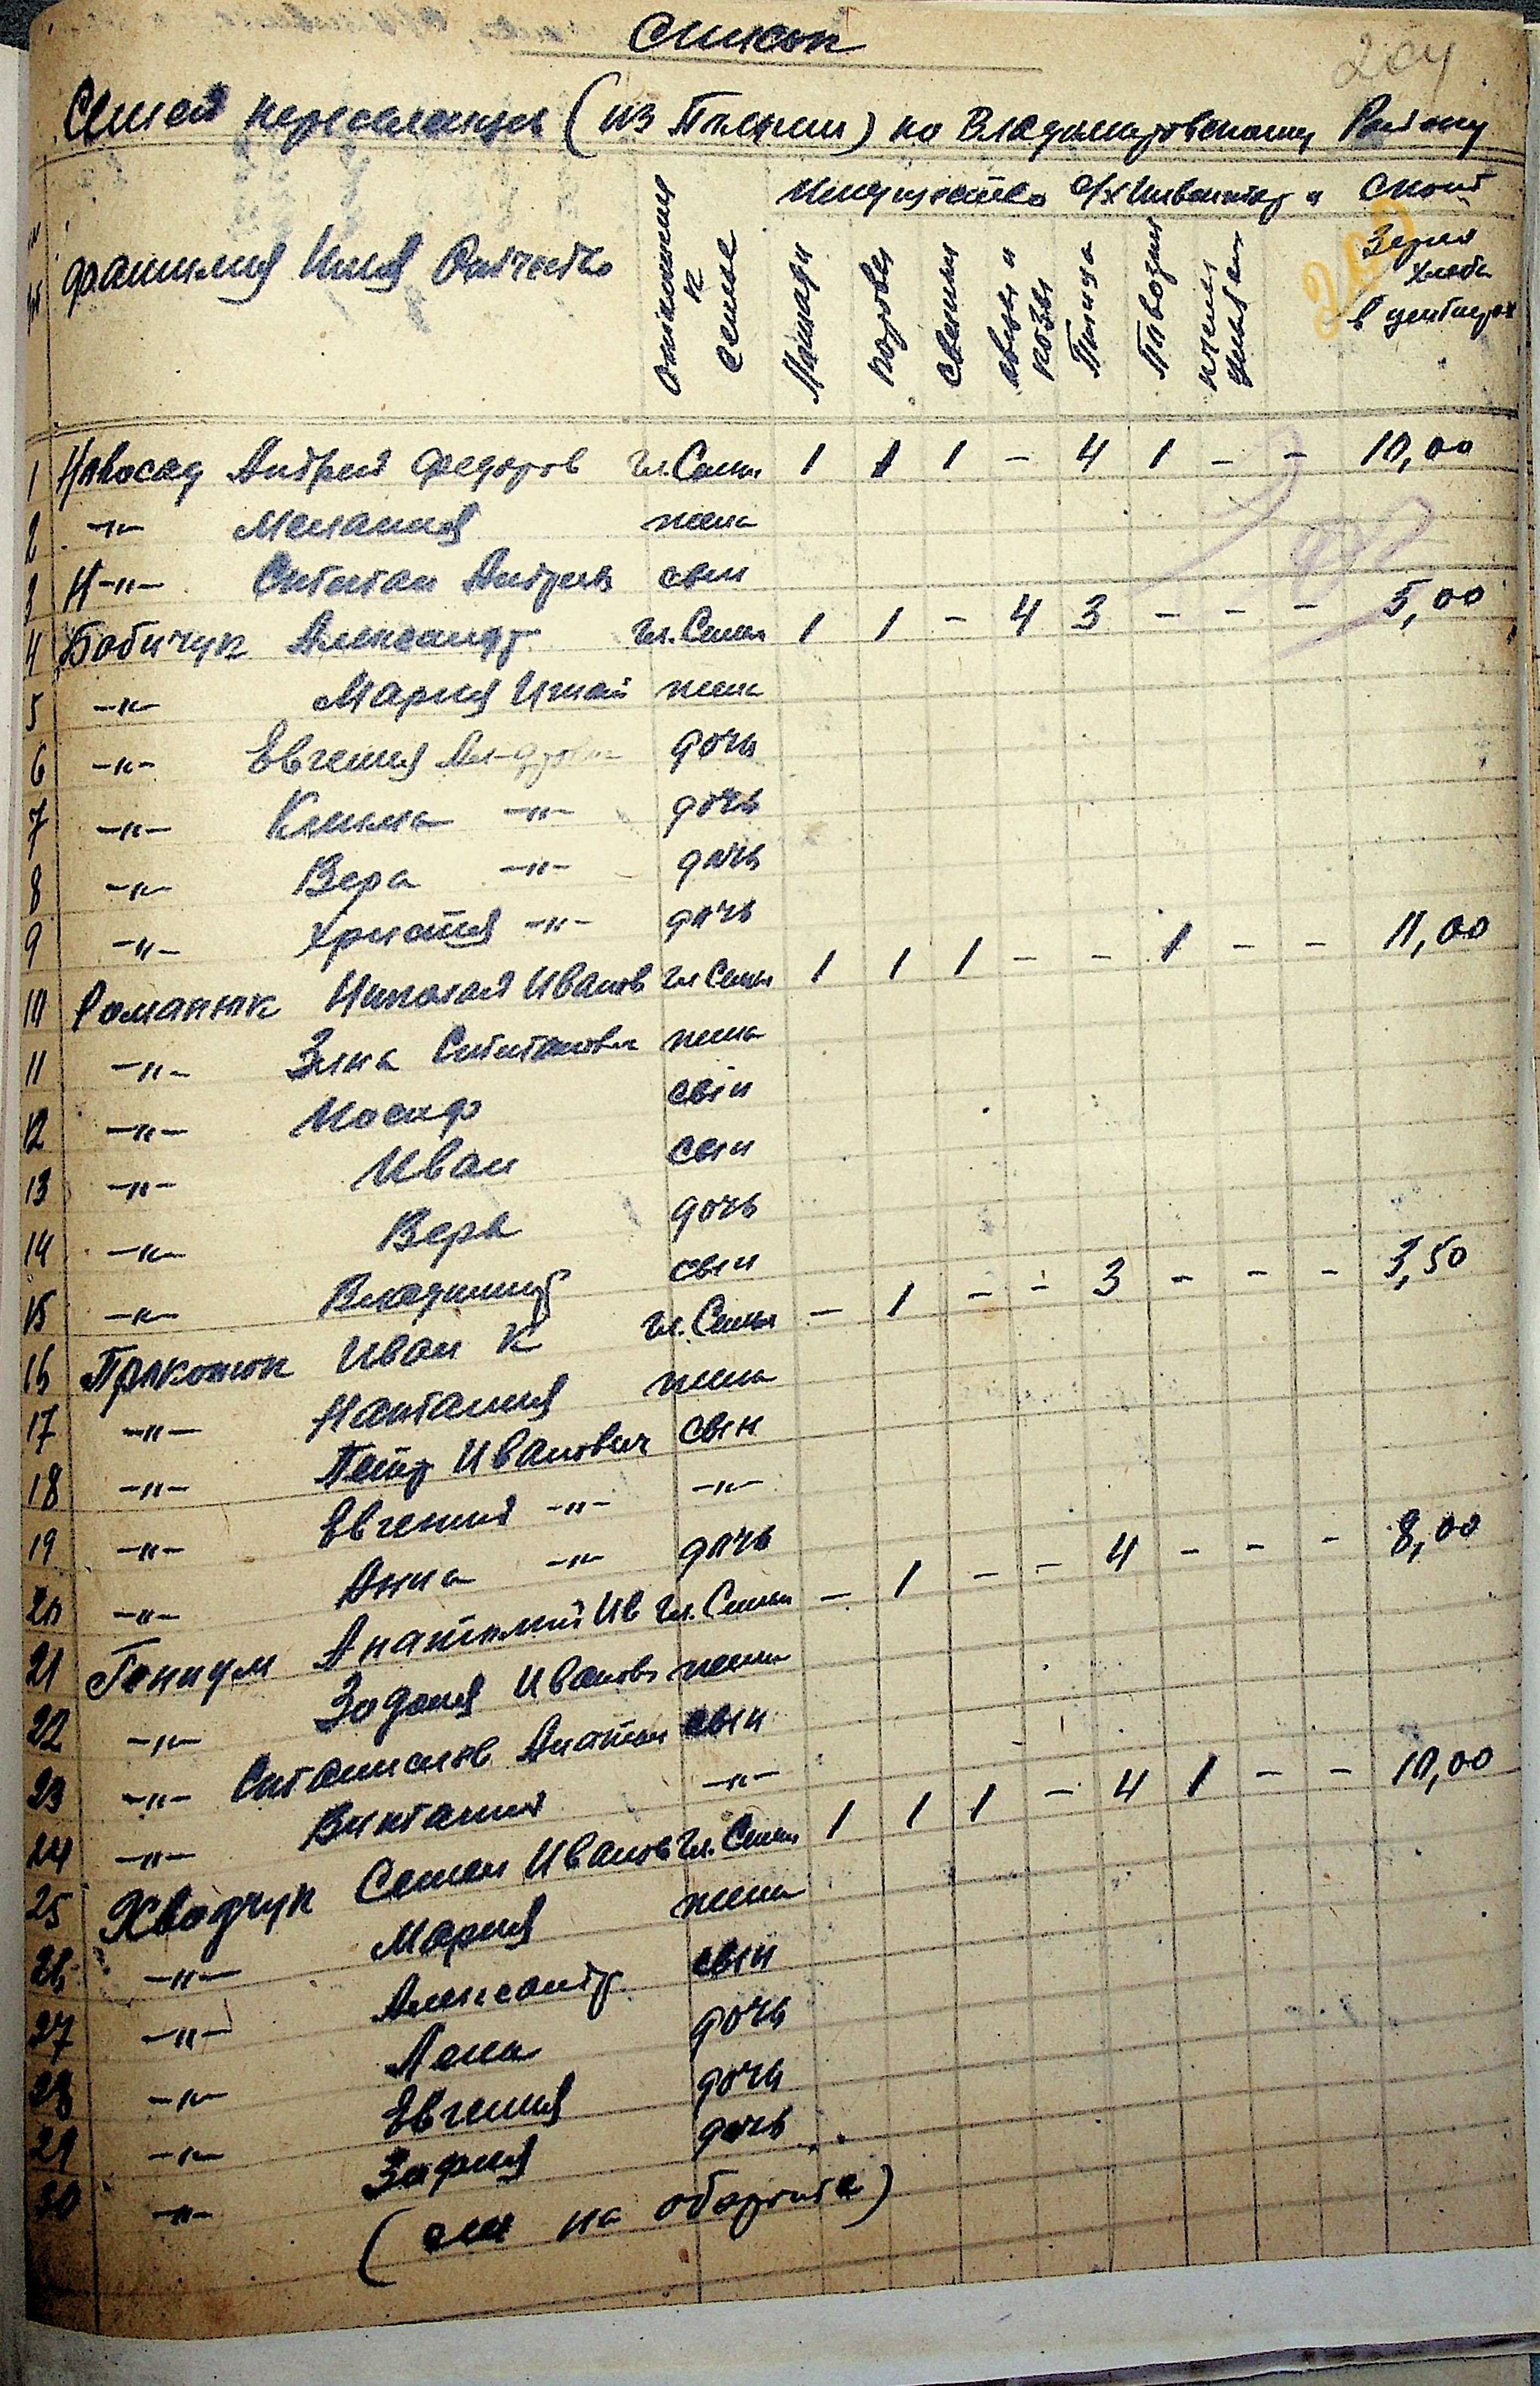 Список
204
Семей переселенцев (из Польши) по Владимировскому Району
№ Фамилия Имя Отчество Отношение к семье Имущество с/х Инвентарь и Скот
Лошади Коровы Свиньи овцы и козы Птица Повозки Зерна хлеба в центнерах
200
1 Новосад Андрей Федоров гл. Семьи 1 1 1 – 4 1 – – 10,00
2 –"– Мелания жена
3 Н–"– Степан Андреев сын
4 Бобичук Александр гл. Семьи 1 1 – 4 3 – – – 5,00
5 –"– Мария жена
6 –"– Евгения Ал-дровна дочь
7 –"– –"– дочь
8 –"– Вера –"– дочь
9 –"– Христия –"– дочь
10 Романюк Николай Иванов гл Семьи 1 1 1 – – 1 – – 11,00
11 –"– Степановна жена
12 –"– Иосиф сын
13 –"– Иван сын
14 –"– Вера дочь
15 –"– Владимир сын
16 Прокопюк Иван К гл. Семьи – 1 – – 3 – – – 3,50
17 –"– Наталия жена
18 –"– Петр Иванович сын
19 –"– Евгений –"– –"–
20 –"– Анна –"– дочь
21 Анатолий Ив гл. Семьи – 1 – – 4 – – – 8,00
22 –"– Иванов жена
23 –"– Станислав Анатол сын
24 –"– –"–
25 Хводчук Семен Иванов гл. Семьи 1 1 1 – 4 1 – – 10,00
26 –"– Мария жена
27 –"– Александр сын
28 –"– Лена дочь
29 –"– Евгения дочь
30 –"– Зофия дочь
(см на обороте)